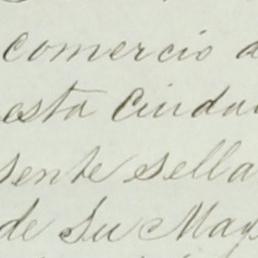 comercio d
esta Ciudad
sente sella
de Su May